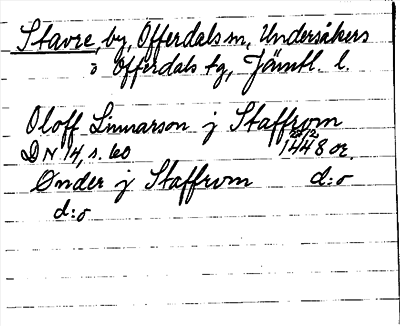 Stavre, by, Offerdals sn, Undersåkers
o Offerdals tg, Jämtl. l.
Oloff Linnarson j Staffrom
DN 14, s. 60 1448 or.
Ønder j Staffrom d:o
d:o